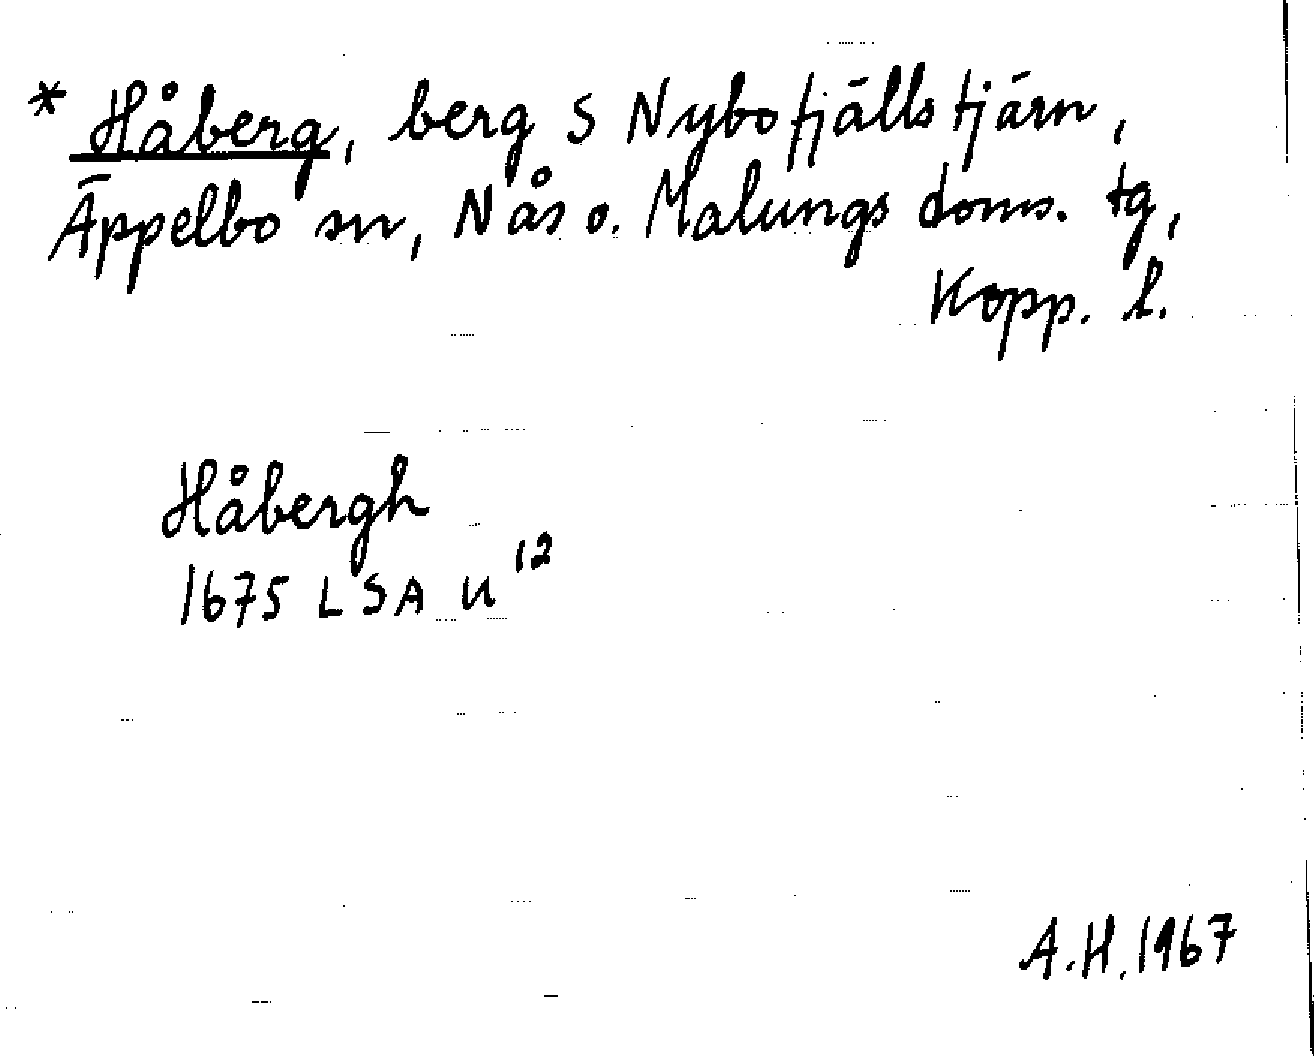 * Håberg, berg S Nybofjällstjärn,
Äppelbo sn, Nås o. Malungs doms. tg,
Kopp. l.
Håbergh
1675 LSA U¹²
A.H. 1967